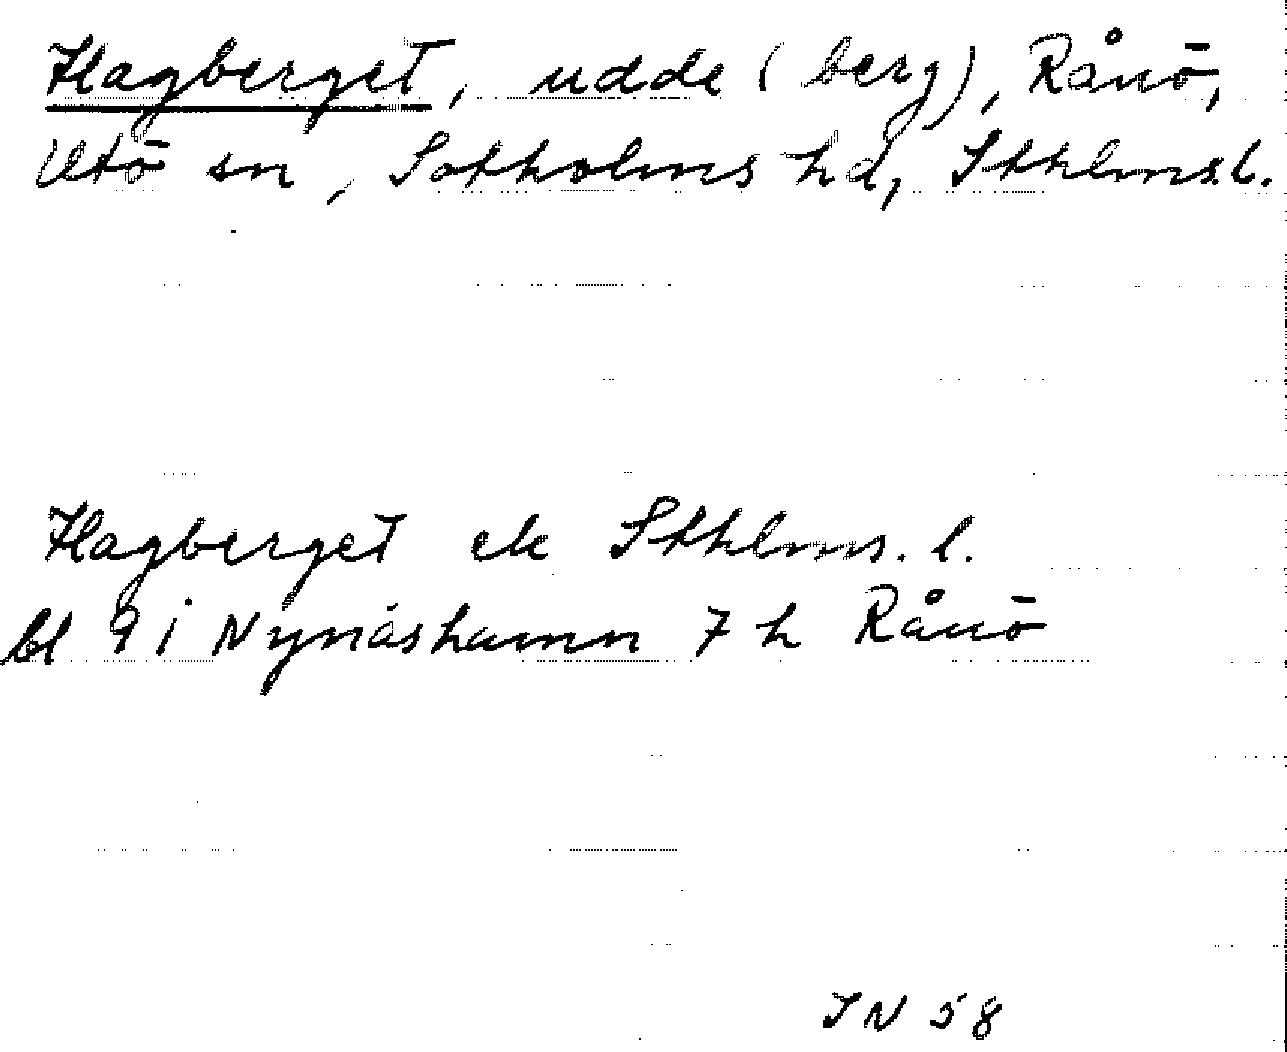 Hagberget, udde (berg), Rånö,
Utö sn, Sotholms hd, Sthlms.l.
Hagberget ek Sthlms. l.
bl 9 i Nynäshamn 7 h Rånö
IN 58